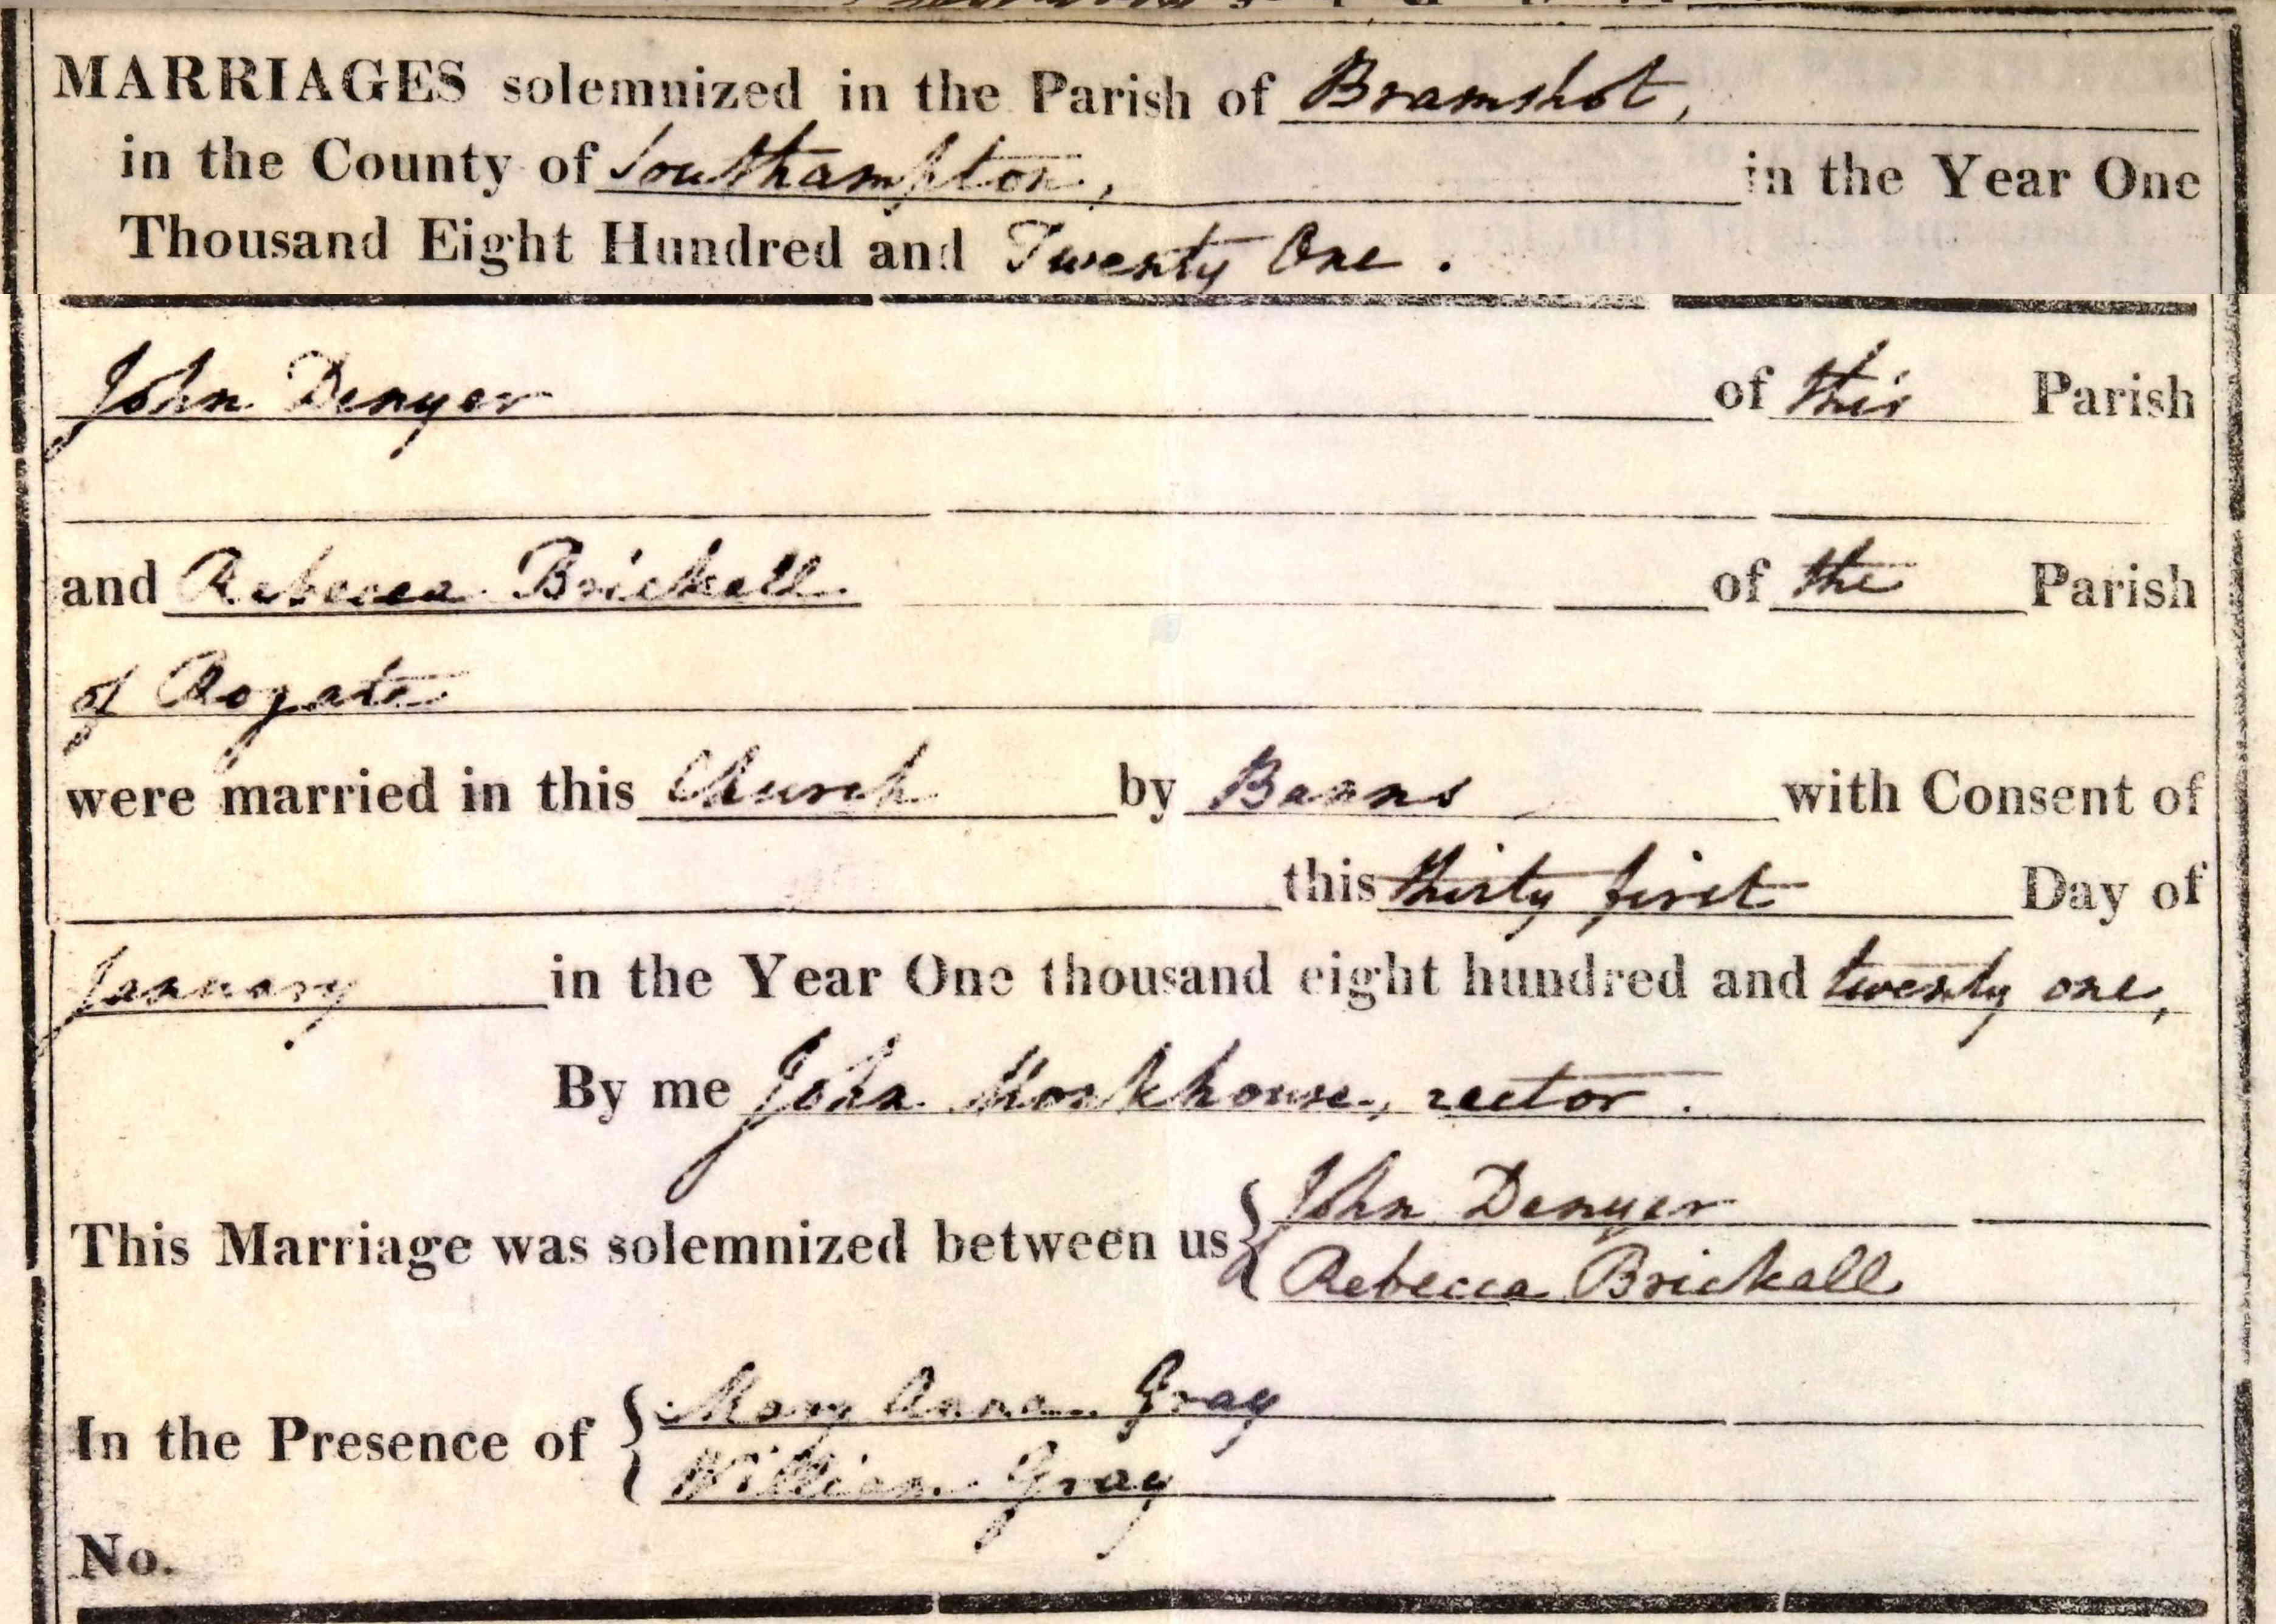 MARRIAGES solemnized in the Parish of Bramshot,
in the County of Southampton, in the Year One
Thousand Eight Hundred and Twenty One.
John Denyer of this Parish
and Rebecca Brickell of the Parish
of Rogate
were married in this Church by Banns with Consent of
this thirty first Day of
January in the Year One thousand eight hundred and twenty one,
By me John Monkhouse, rector.
This Marriage was solemnized between us { John Denyer
Rebecca Brickell
In the Presence of { Mary Anne Gray
William Gray
No.